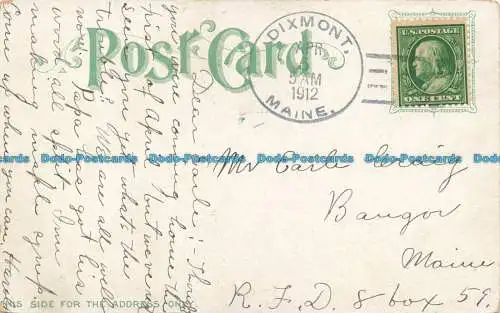 Post Card
DIXMONT.
APR
5 AM
1912
MAINE.
U.S. POSTAGE
ONE CENT
Dear
you were coming home the
first of April but we never
see you what's the
trouble? We are all well
now. Papa has got his
wood all
making maple syrup.
Come up when you can,
Mr Earle Craig
Bangor
Maine
R.F.D. 8 box 59.
THIS SIDE FOR THE ADDRESS ONLY
Dodo-Postcards Dodo-Postcards Dodo-Postcards Dodo-Postcards Dodo-Postcards